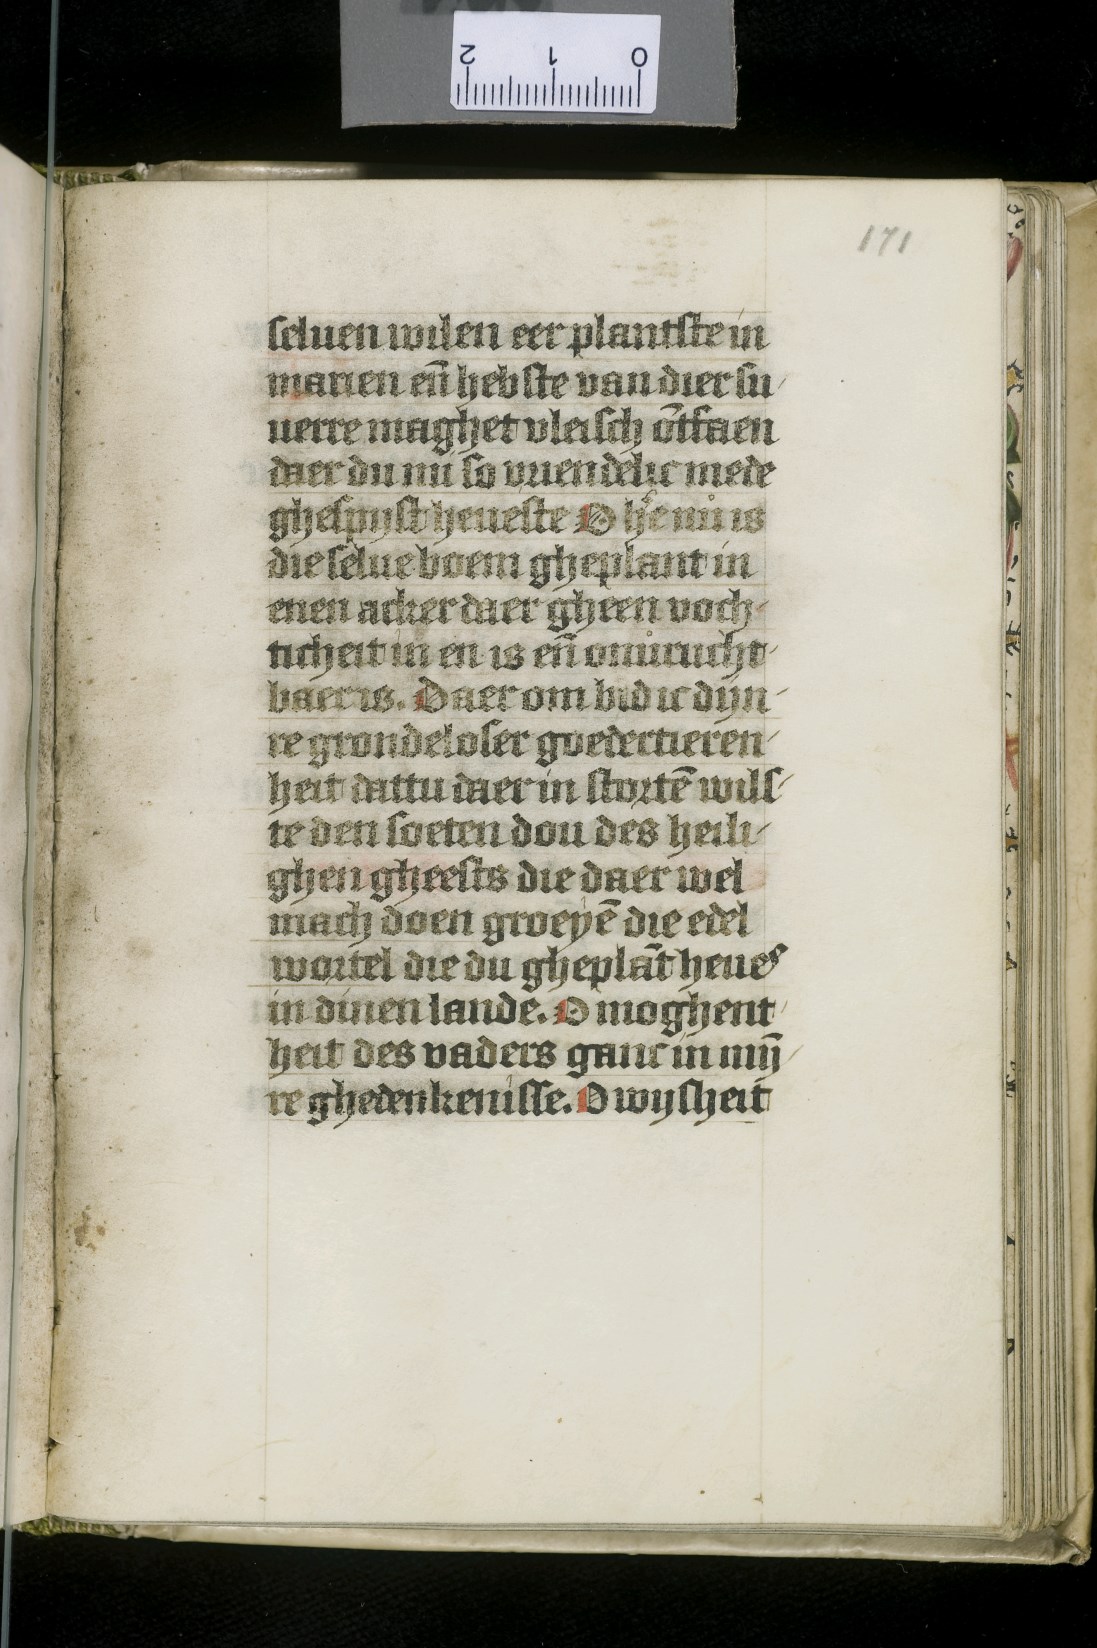 2 1 0
171
seluen wilen eer plantste in
marien en̄ hebste van dier su
uerre maghet vleisch ōtfaen
daer du mi so vriendelic mede
ghespijst heueste O hr̄e nu is
die selue boem gheplant in
enen acker daer gheen voch
ticheit in en is en̄ onurucht
baer is. Daer om bid ic dijn
re grondeloser goedertieren
heit dattu daer in stortē wils
te den soeten dou des heili
ghen gheests die daer wel
mach doen groeyē die edel
wortel die du gheplāt heues
in dinen lande. O moghent
heit des vaders ganc in mij̄
re ghedenkenisse. O wijsheit